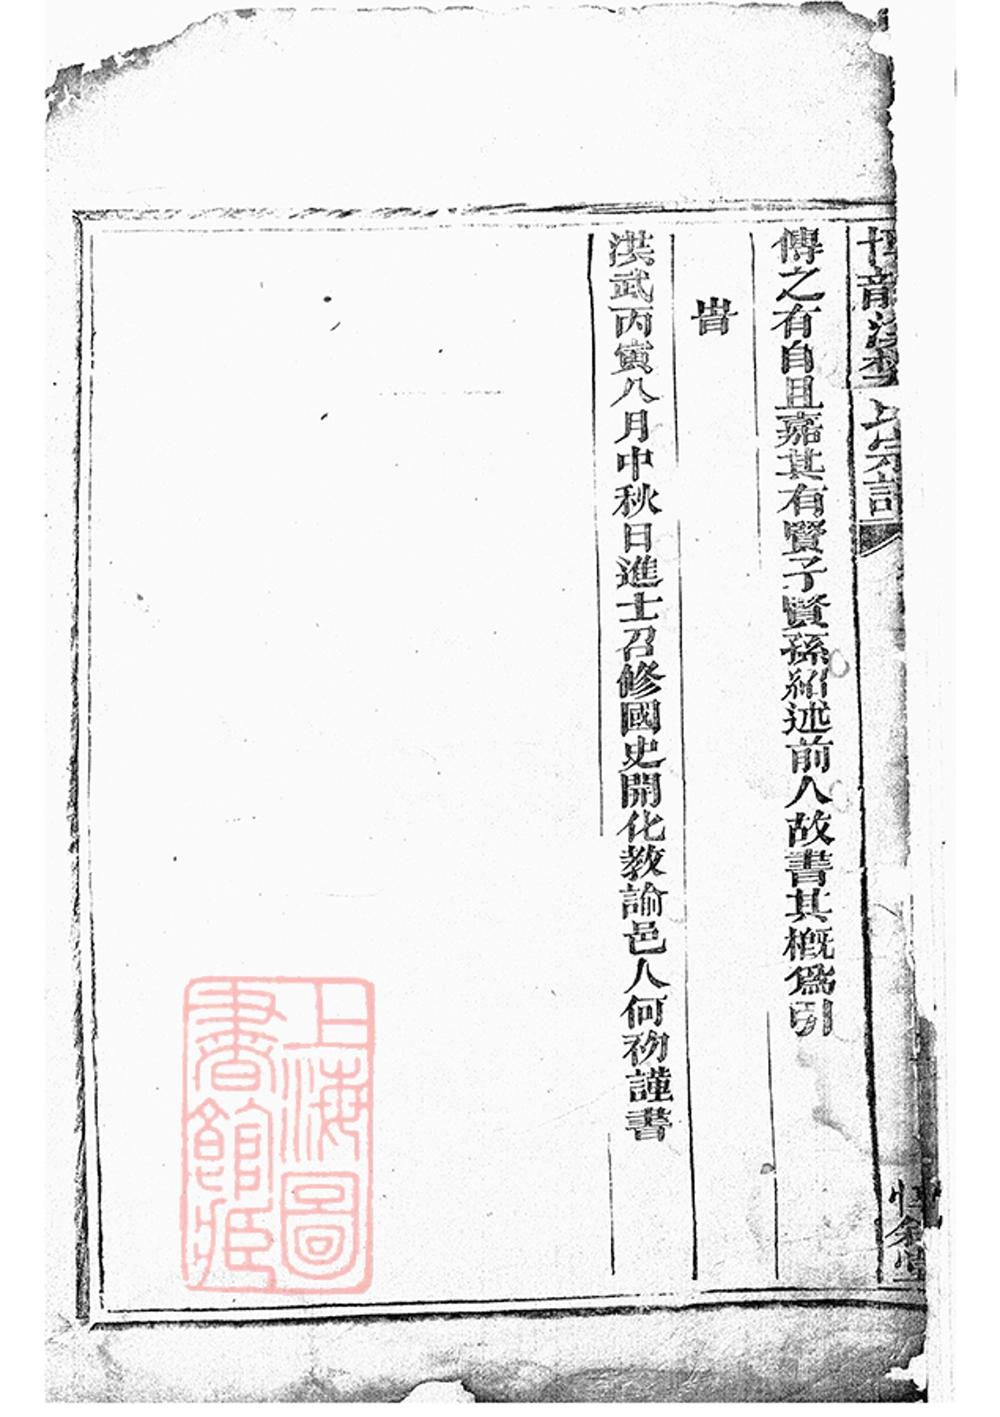 龍溪 氏宗譜
傳之有自且嘉其有賢子賢孫紹述前人故書其槪爲引
旹
洪武丙寅八月中秋日進士召修國史開化敎諭邑人何初謹書
上海圖
書館藏